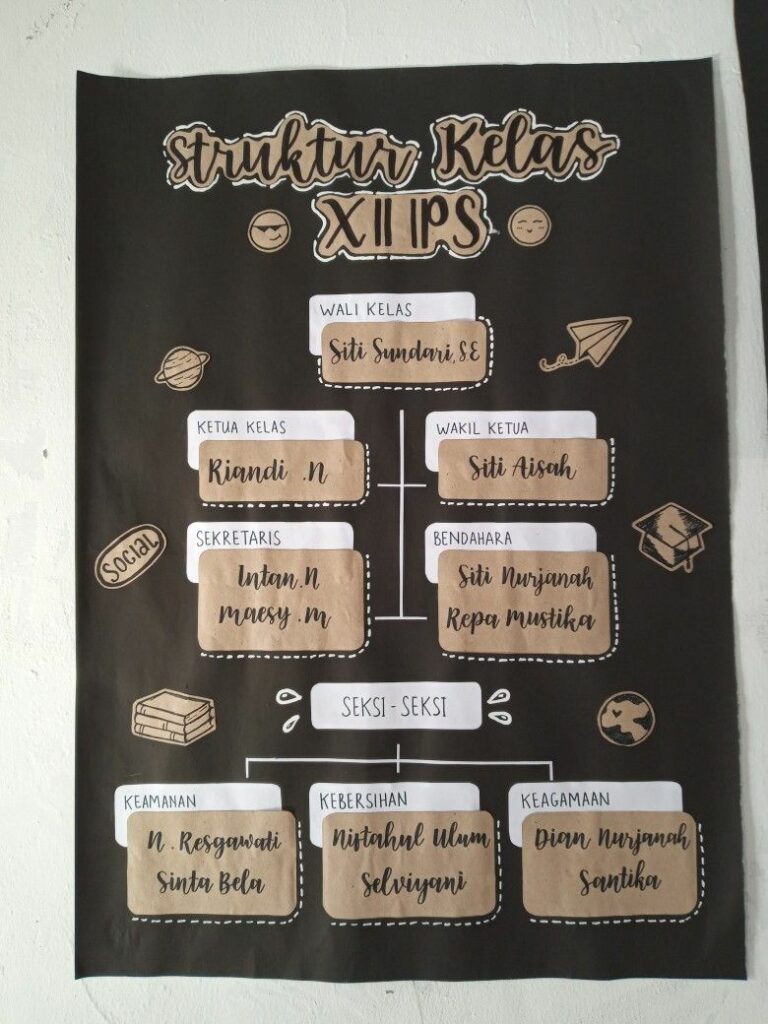 Struktur Kelas
XII IPS
WALI KELAS
Siti Sundari, SE
KETUA KELAS
Riandi .N
WAKIL KETUA
Siti Aisah
SEKRETARIS
Intan.N
Maesy .M
BENDAHARA
Siti Nurjanah
Repa Mustika
SOCIAL
SEKSI - SEKSI
KEAMANAN
N. Resgawati
Sinta Bela
KEBERSIHAN
Niftahul Ulum
Selviyani
KEAGAMAAN
Dian Nurjanah
Santika